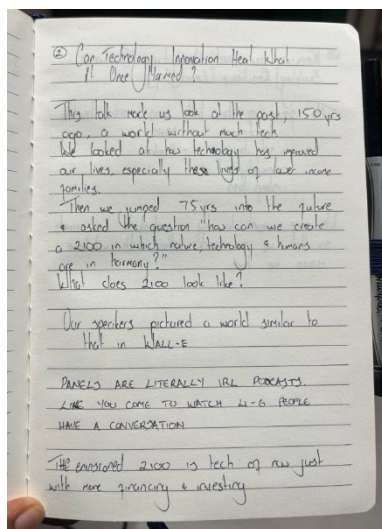 ② Can Technology Innovation Heal What
It Once Harmed?
This talk made us look at the past, 150 yrs
ago, a world without much tech
We looked at how technology has improved
our lives, especially these lives of lower income
families.
Then we jumped 75 yrs into the future
& asked the question "how can we create
a 2100 in which nature, technology & humans
are in harmony?"
What does 2100 look like?
Our speakers pictured a world similar to
that in WALL-E
PANELS ARE LITERALLY IRL PODCASTS.
LIKE YOU COME TO WATCH 4-6 PEOPLE
HAVE A CONVERSATION
THE envisioned 2100 is tech of now just
with more financing & investing